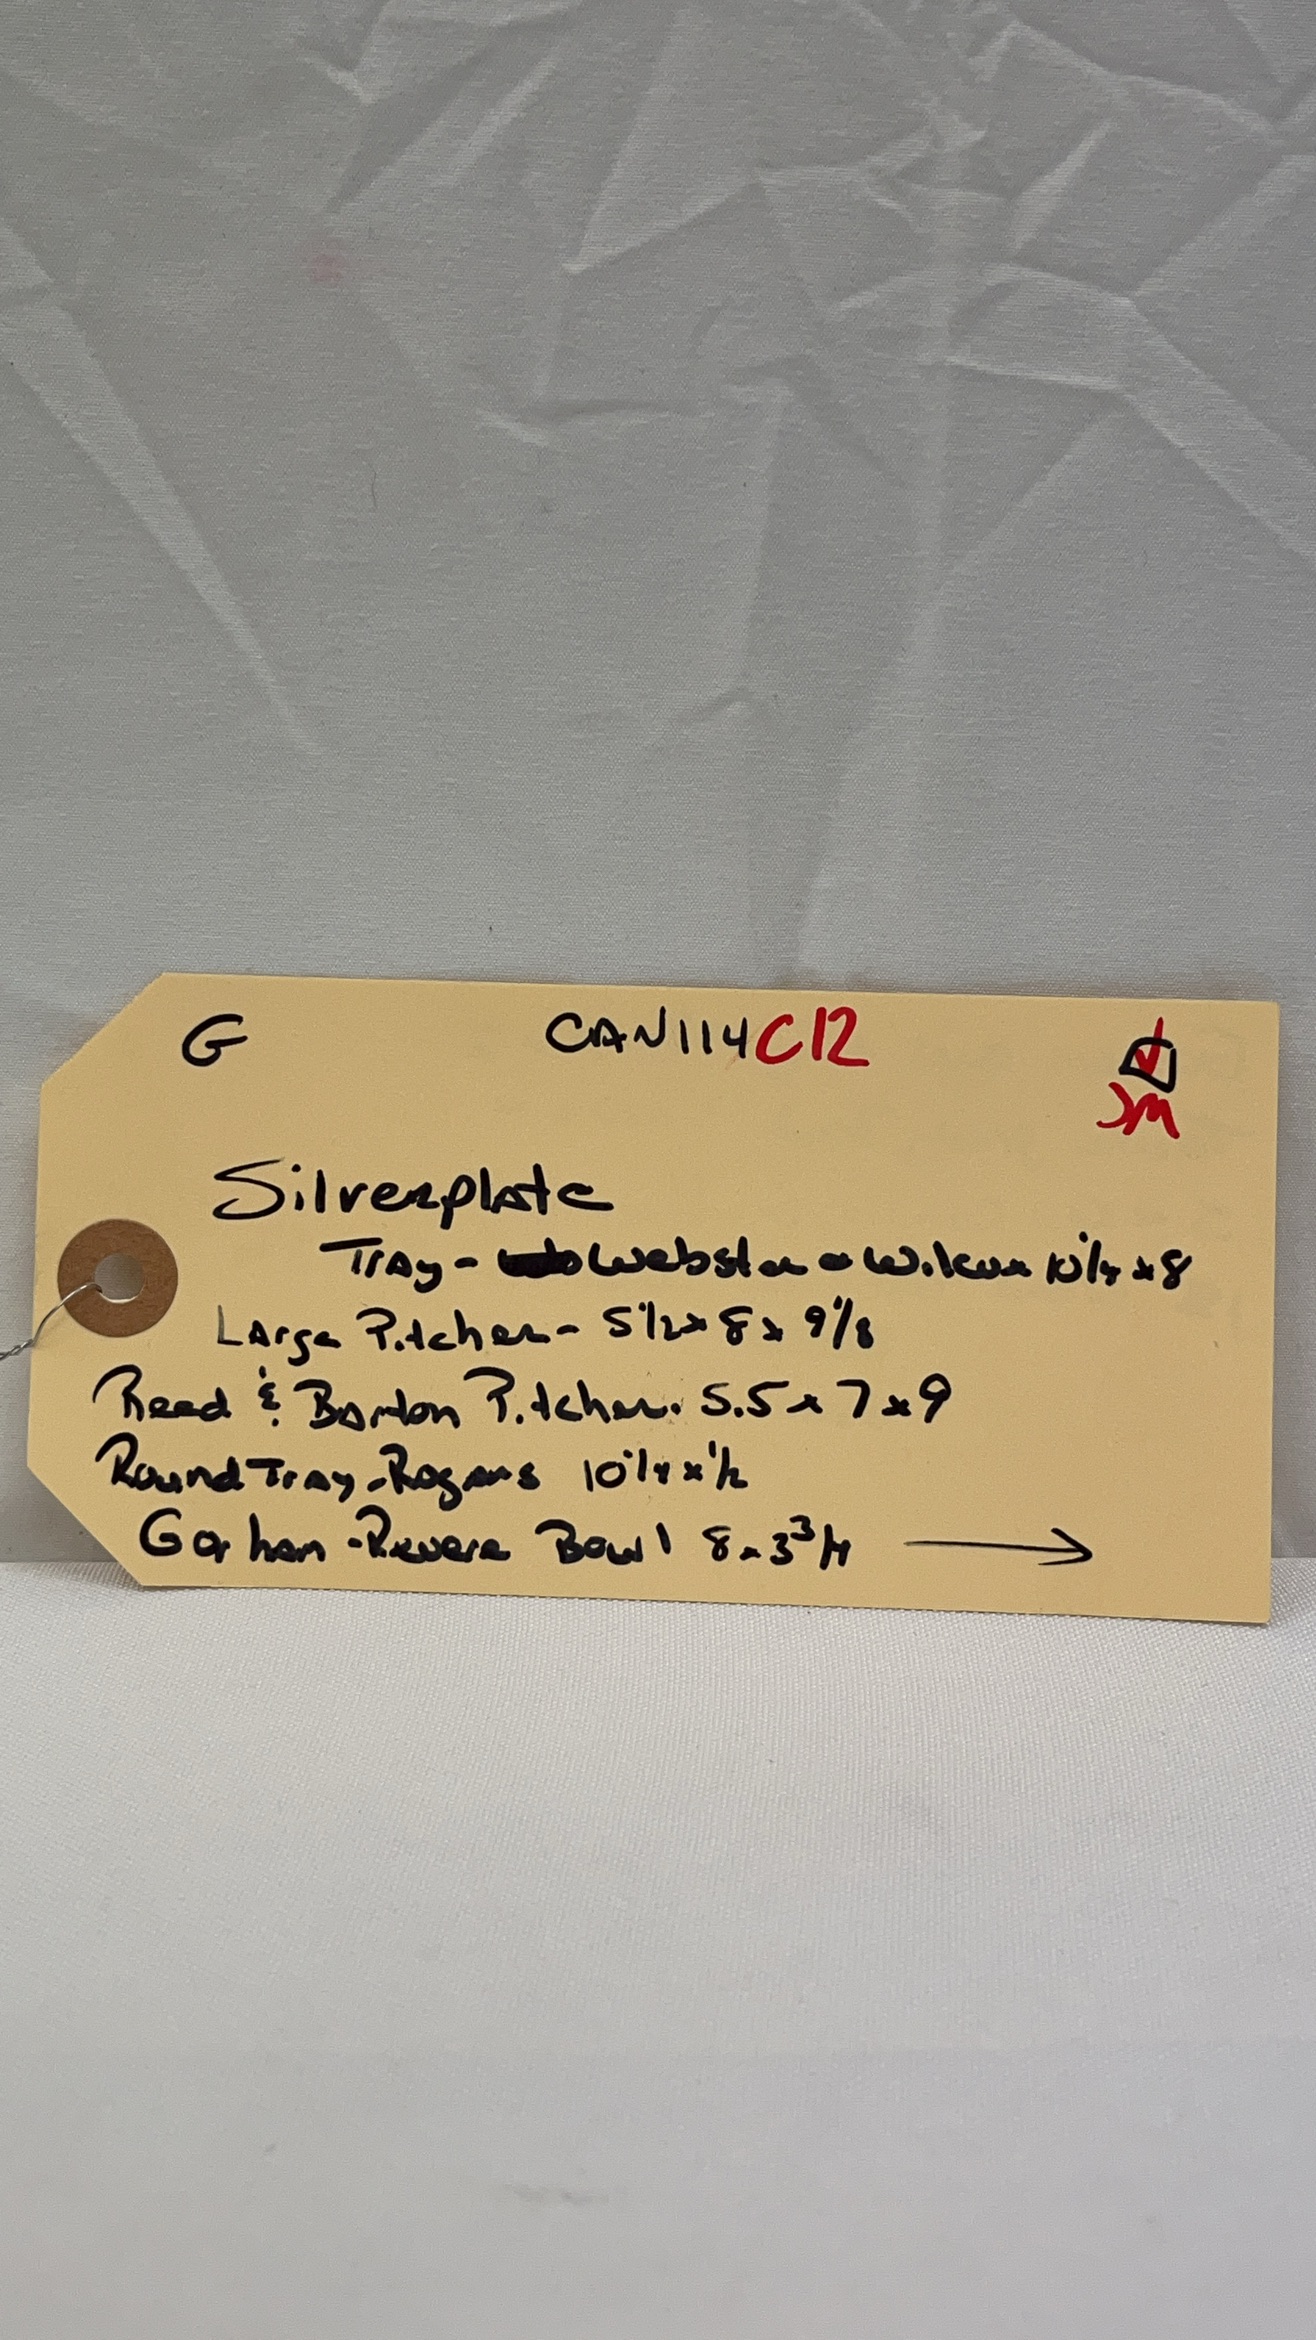 G CAN114C12
JM
Silverplate
Tray - Webster - Wilcox 10 1/4 x 8
Large Pitcher - 5 1/2 x 8 x 9 1/8
Reed & Barton Pitcher. 5.5 x 7 x 9
Round Tray - Rogers 10 1/4 x 1/2
Gorham - Revere Bowl 8 x 3 3/4 →